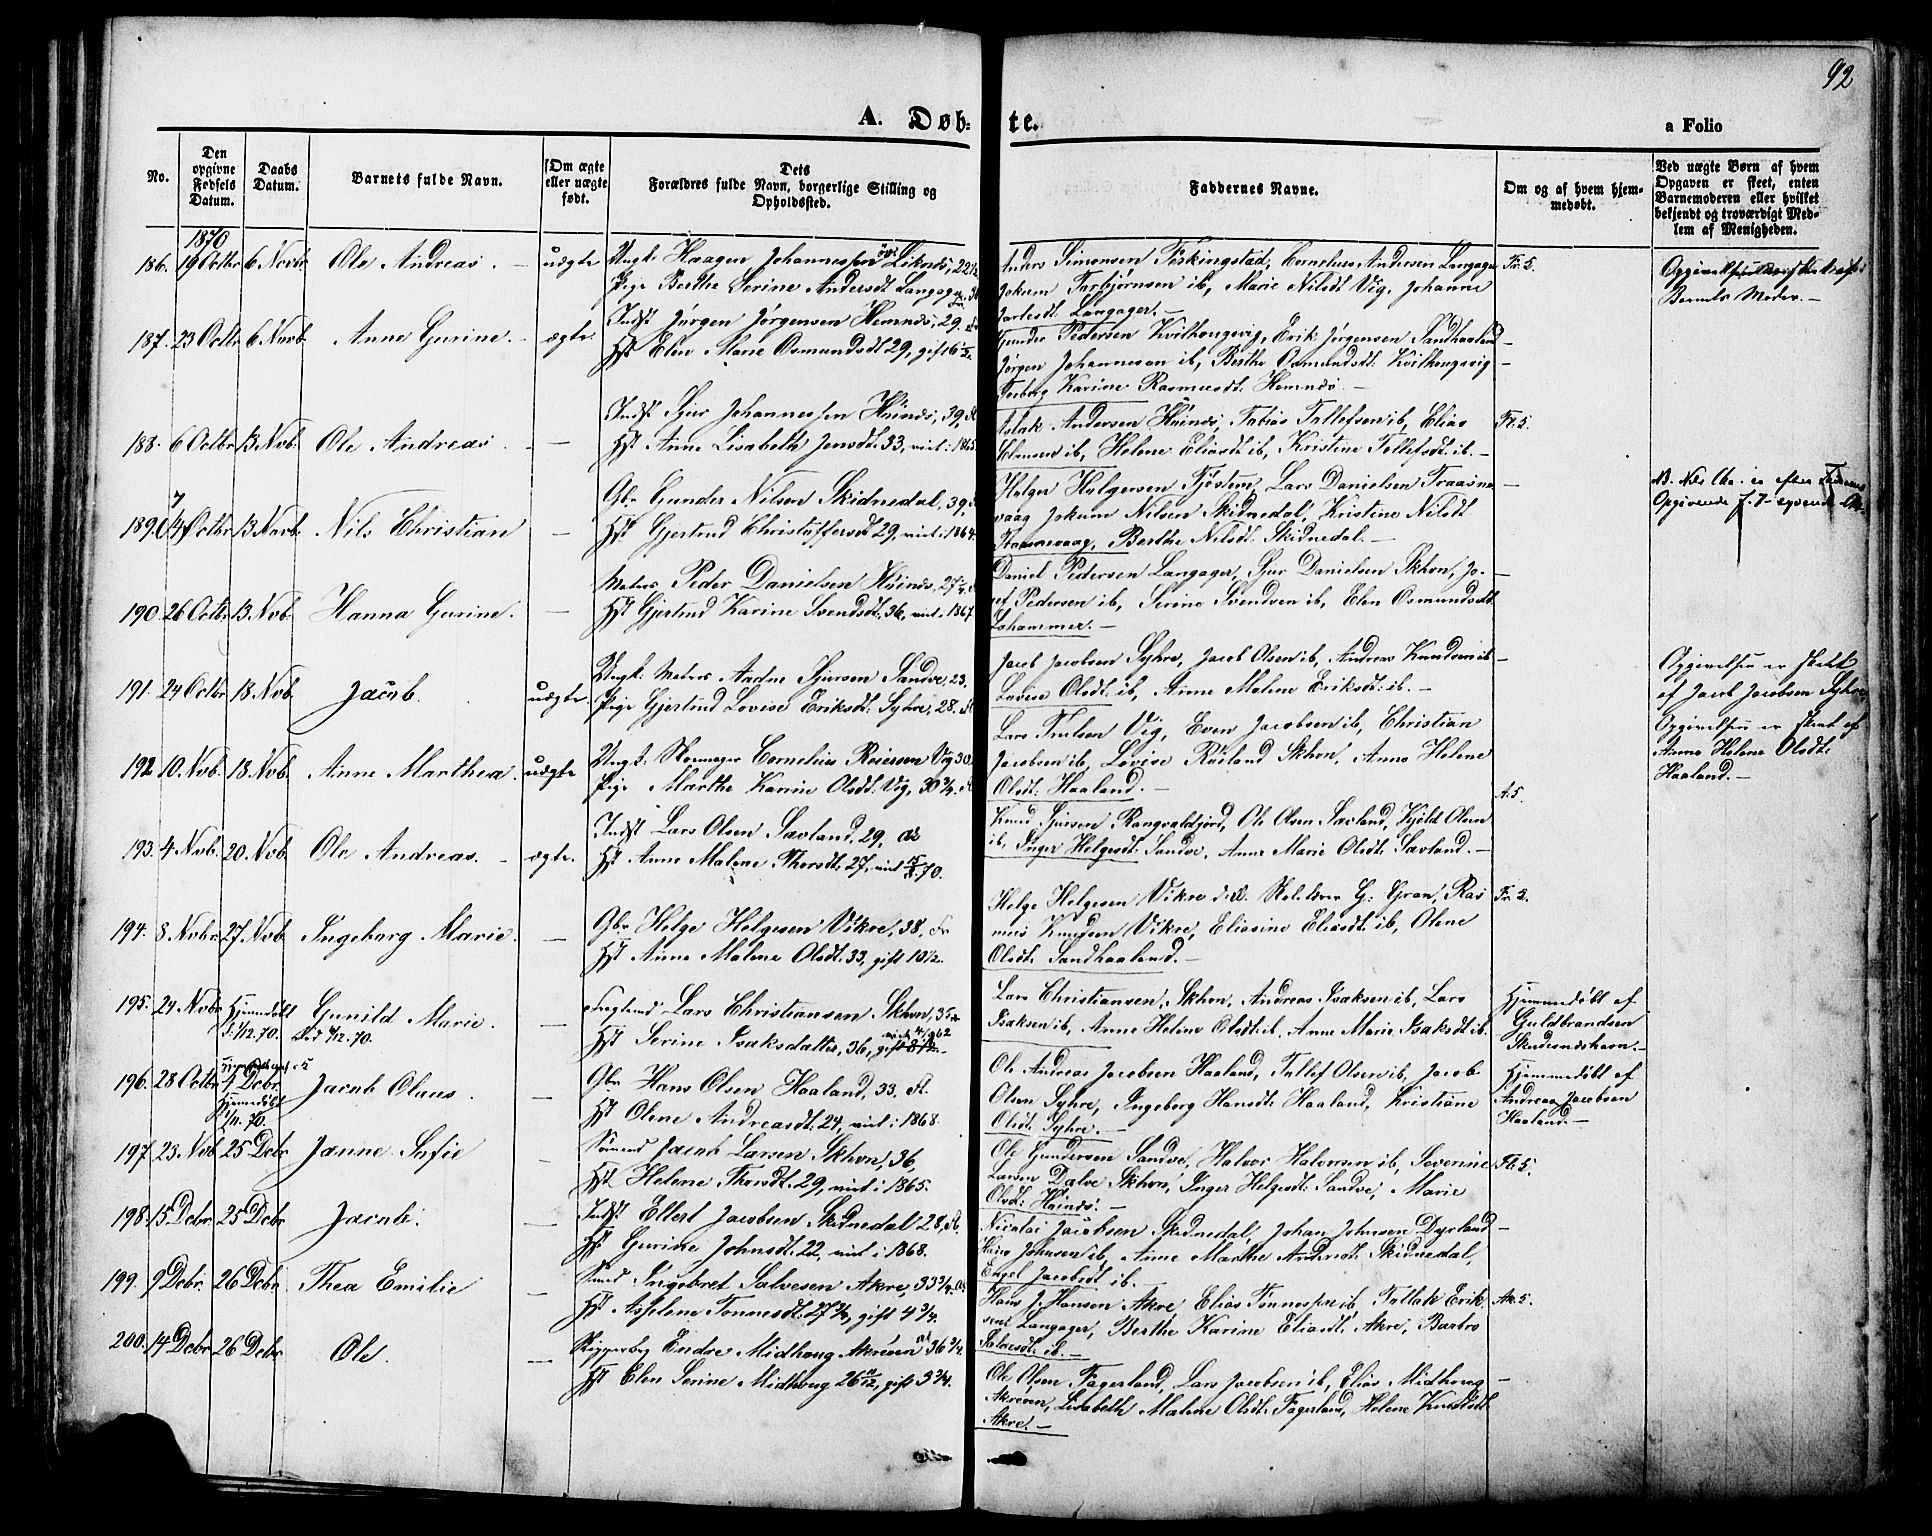 92
A. Døb- te.
a Folio
No.
Den opgivne Fødsels Datum.
Daabs Datum.
Barnets fulde Navn.
Om ægte eller uægte født.
Dets Forældres fulde Navn, borgerlige Stilling og Opholdssted.
Faddernes Navne.
Om og af hvem hjemmedøbt.
Ved uægte Børn af hvem Opgaven er skeet, enten Barnemoderen eller hvilket bekjendt og troværdigt Medlem af Menigheden.
1870
186. 19 Octbr 6 Novbr Ole Andreas. uægte Ungk: Haagen Johannessen Liknes, 22 1/2
Pige Berthe Serine Andersdt Langager
Anders Simonsen Ferkingstad, Cornelius Andersen Langager
Jokum Torbjørnsen ib, Marie Nilsdt Vig, Johanne
Langager.
Fr. 5.
Barnets Moder.
187. 23 Octbr 6 Novb. Anne Gurine. ægte. Indst Jørgen Jørgensen Hemnes, 29.
Hst Elen Marie Osmundsdt 29, gift 6 1/2.
Gunder Pedersen Kvilhougsvig, Erik Jørgensen Sandhaaland
Jørgen Johannesen ib, Berthe Osmundsdt: Kvilhougsvig
Karine Rasmusdt: Hemnes.
188. 6 Octbr 13 Novb. Ole Andreas. — Indst Sjur Johannessen Høines, 39,
Hst Anne Lisabeth Jensdt: 33, viet i 1865.
Aslak Andersen Høines, Tobias Tollefsen ib, Elias
Clemsen ib, Helene Eliasdt ib, Kristine Tollefsdt. ib.
Fl. 5.
189. 4 Octbr 13 Novb. Nils Christian — Gbr Gunder Nilsen Skidnedal, 39,
Hst Gjertrud Christoffersdt 29, viet i 1864.
Holger Holgersen Tjøstem, Lars Danielsen
vaag Jokum Nilsen Skidnedal, Kristine Nilsdt
Berthe Nilsdt: Skidnedal.
190. 26 Octbr 13 Novb. Hanna Gurine. — Matros Peder Danielsen Høines, 27 1/4.
Hst Gjertrud Karine Svendsdt. 36, viet i 1867.
Daniel Pedersen Langager, Sjur Danielsen Skhvn, Jo-
sef Pedersen ib, Serine Svendsen ib, Elen Osmundsdt
191. 24 Octbr 18 Novb. Jacob. uægte Ungk: Matros Aadne Sjursen Sandve, 23.
Pige Gjertrud Lovise Eriksdt: Syhre, 28.
Jacob Jacobsen Syhre, Jacob Olsen ib, Andreas Knudsen ib
Lovise Olsdt: ib, Anne Malene Eriksdt: ib.
Opgivelsen er skeet
af Jacob Jacobsen Syhre
192 10. Novb. 18. Novb. Anne Marthea. uægte Ungk: Cornelius Reiersen Vig 30.
Pige Marthe Karine Olsdt: Vig, 30 3/4.
Lars Vig, Even Jacobsen ib, Christian
Jacobsen ib, Lovise Skhvn, Anne Helene
Olsdt: Haaland.
A. 5.
Opgivelsen er skeet af
Anne Helene Olsdt:
Haaland.
193. 4 Novb. 20. Novb. Ole Andreas. ægte. Indst Lars Olsen Savland, 29,
Hst Anne Malene Thorsdt. 27, viet 70.
Knud Sjursen Rangvaldfjord, Ole Olsen Savland, Kjøld Olsen
ib, Inger Helgesdt: Sandve, Anne Marie Olsdt: Savland.
194. 8 Novbr 27 Novb. Ingeborg Marie. — Gbr Helge Helgesen Vikre, 38, Fr
Hst Anne Malene Olsdt: 33, gift 10 1/2.
Helge Helgesen Vikre G: Gran, Ras
mus Knudsen Vikre, Eliasine Eliasdt ib, Olene
Olsdt: Sandhaaland.
Fr. 2.
195. 24 Novbr Hjemmedøbt d. 1/12. 70. Gunild Marie. Død 4/12. 70. — Lars Christiansen Skhvn, 35
Hst Serine Isaksdatter, 36,
Lars Christiansen Skhvn, Andreas Isaksen ib, Lars
Isaksen ib, Anne Helene Olsdt. ib, Anne Marie Isaksdt ib.
Hjemmedøbt af
Guldbrandsen
Skudesneshavn.
196. 28 Octbr 4 Dcbr. Hjemmedøbt 1/11. 70. Jacob Olaus. — Gbr Hans Olsen Haaland, 33.
Hst Olene Andreasdt: 24, viet i 1868.
Ole Andreas Jacobsen Haaland, Tollef Olsen ib, Jacob
Olsen Syhre, Ingeborg Hansdt: Haaland, Kristiane
Olsdt: Syhre.
Hjemmedøbt af
Andreas Jacobsen
Haaland.
197. 23. Novb 25 Dcbr Janne Sofie — Sømand Jacob Larsen Skhvn, 36,
Hst Helene Thorsdt. 29, viet i 1865.
Ole Gundersen Sandve, Halvor Halvorsen ib, Severine
Larsen Dalve Skhvn, Inger Helgesdt: Sandve, Marie
Olsdt: Høines.
Fl. 5.
198. 15 Dcbr. 25 Dcbr Jacob. — Indst Ellert Jacobsen Skidnedal 28,
Hst Gurine Johnsdt: 22, viet i 1868.
Nicolai Jacobsen Skidnedal, Johan Johnsen Dyrland
Hans Johnsen ib, Anne Marthe Andersdt. Skidnedal,
Engel Jacobsdt ib.
199. 9 Dcbr. 26 Dcbr. Thea Emilie — Ingebret Salvesen Akre, 33 3/4.
Hst Asselene Tønnesdt: 27 3/4, gift 4 3/4.
Hans J. Hansen Akre, Elias Tønnessen ib, Tollak Erik
sen Langager, Berthe Karine Eliasdt: Akre, Barbro
Salvesdt: ib.
Ak. 5.
200. 14 Dcbr 26 Dcbr. Ole. — Endre Midhoug Akrøen 36 3/4.
Hst Elen Serine Midhoug 26 11/12, gift 3 3/4.
Ole Olsen Fagerland, Lars Jacobsen ib, Elias Midhoug
Akrøen, Lisabeth Malene Olsdt: Fagerland, Helene Knudsdt:
Akre.